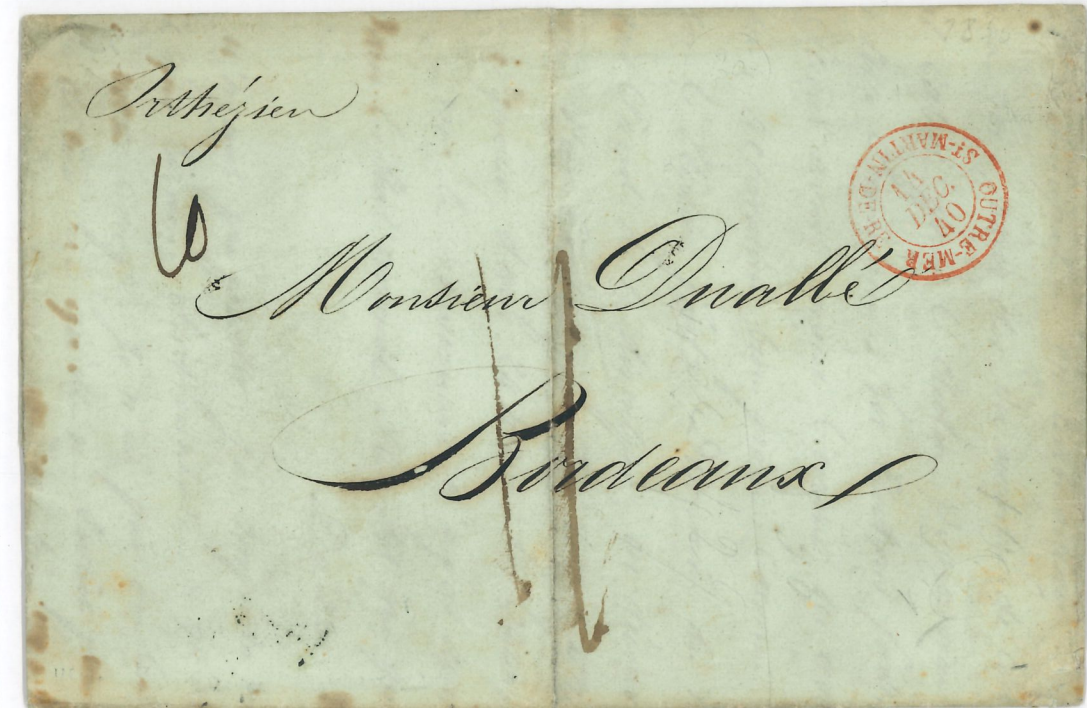 Orthézien
OUTRE-MER
St-MARTIN-DE-RE
14
DEC.
40
Monsieur Duallbé
Bordeaux